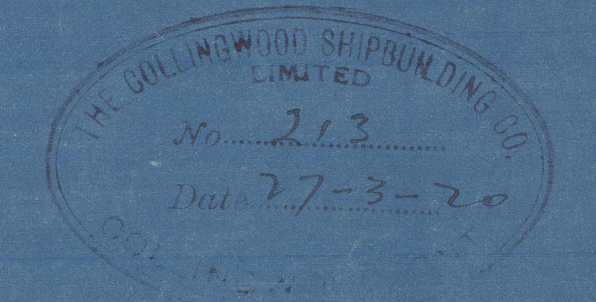 THE COLLINGWOOD SHIPBUILDING CO.
LIMITED
No. 213
Date 27-3-20